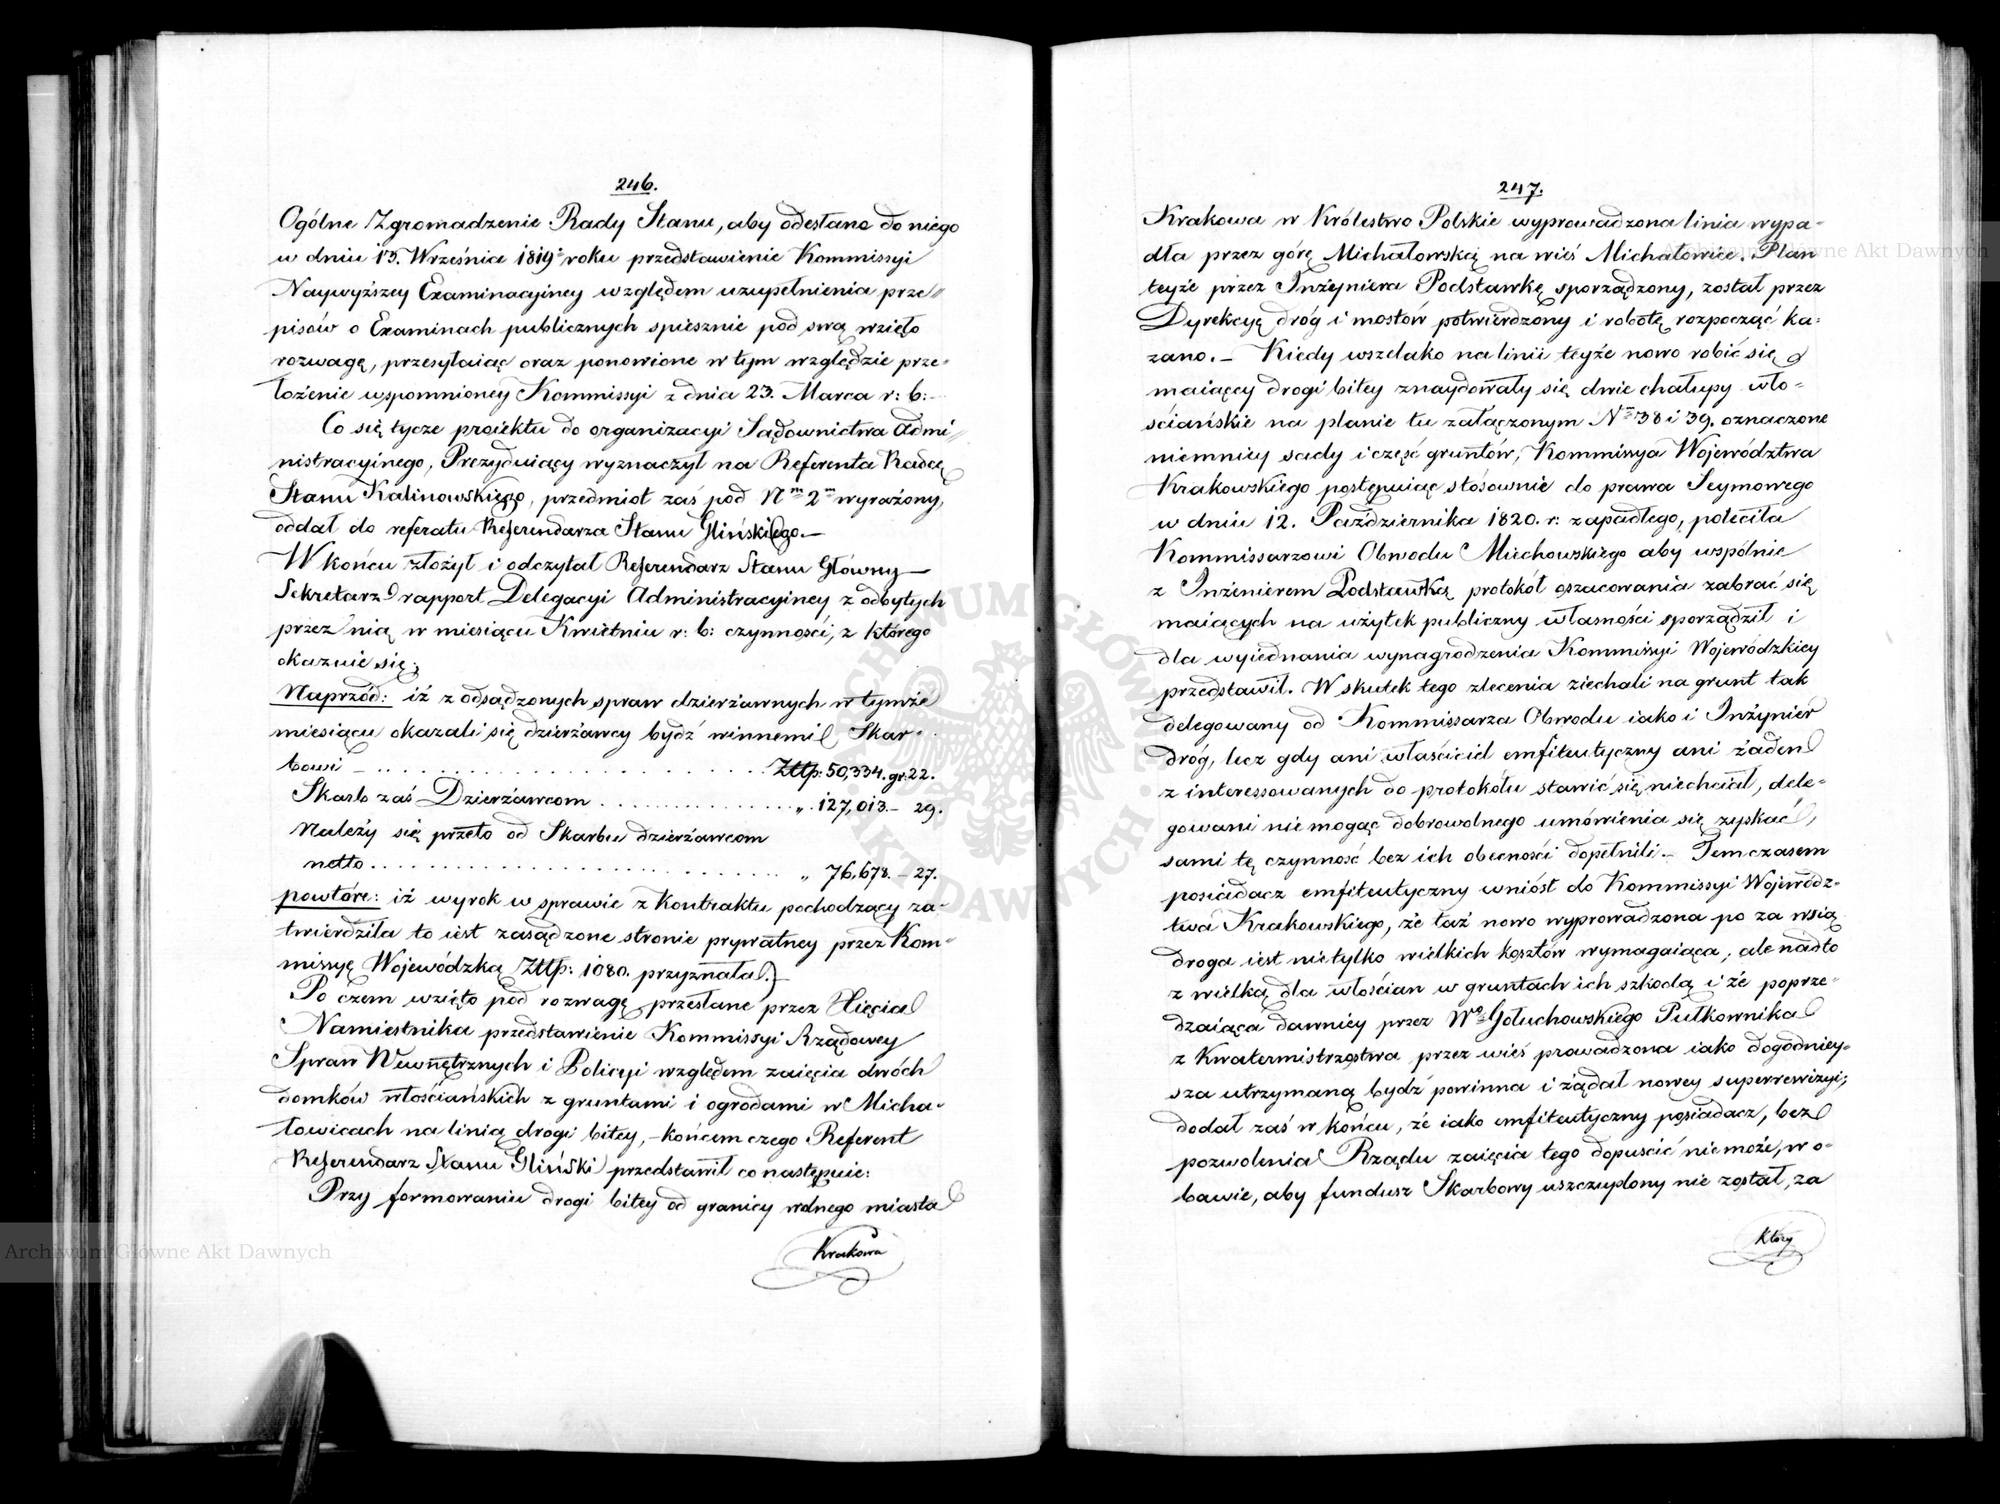 246.
Ogólne Zgromadzenie Rady Stanu, aby odesłane do niego
w dniu 15. Września 1819º roku przedstawienie Kommissyi
Naywyższey Examinacyiney względem uzupełnienia prze„
pisów o Examinach publicznych spiesznie pod swą wzięło
rozwagę, przesyłaiąc oraz ponowione w tym względzie prze-
łożenie wspomnioney Kommissyi z dnia 23. Marca r: b:
Co się tycze proiektu do organizacyi Sądownictwa Admi„
nistracyinego, Prezyduiący wyznaczył na Referenta Radcę
Stanu Kalinowskiego, przedmiot zaś pod Nm 2m wyrażony,
oddał do referatu Referendarza Stanu Glińskiego.—
W końcu złożył i odczytał Referendarz Stanu Główny
Sekretarz rapport Delegacyi Administracyiney z odbytych
przez nią w miesiącu Kwietniu r: b: czynności, z którego
okazuie się:
Naprzód: iż z odsądzonych spraw dzierżawnych w tymże
miesiącu okazali się dzierżawcy bydź winnemi Skar-
bowi — . . . . . . . . . . . . . . . . . . . . Złłp: 50,334. gr: 22.
Skarb zaś Dzierżawcom . . . . . . . . . . . . „ 127,013.— 29.
Należy się przeto od Skarbu dzierżawcom
netto . . . . . . . . . . . . . . . . . . . . . . . . . „ 76,678.— 27.
powtóre: iż wyrok w sprawie z Kontraktu pochodzący za-
twierdziła to iest zasądzone stronie prywatney przez Kom-
missyę Wojewódzką Złłp: 1080. przyznała.
Po czem wzięto pod rozwagę przesłane przez Xięcia
Namiestnika przedstawienie Kommissyi Rządowey
Spraw Wewnętrznych i Policyi względem zaięcia dwóch
domków włościańskich z gruntami i ogrodami w Micha-
łowicach na linią drogi bitey, — końcem czego Referent
Referendarz Stanu Gliński przedstawił co następuie:
Przy formowaniu drogi bitey od granicy wolnego miasta
Krakowa
247.
Krakowa w Królestwo Polskie wyprowadzona linia wypa-
dła przez górę Michałowską na wieś Michałowice. Plan
teyże przez Inżyniera Podstawkę sporządzony, został przez
Dyrekcyę dróg i mostów potwierdzony i robotę rozpocząć ka-
zano.— Kiedy wszelako na linii teyże nowo robić się
maiącey drogi bitey znaydowały się dwie chałupy wło-
ściańskie na planie tu załączonym Nm 38 i 39. oznaczone
niemniey sady i część gruntów, Kommissya Województwa
Krakowskiego postępuiąc stósownie do prawa Seymowego
w dniu 12. Października 1820. r: zapadłego, poleciła
Kommissarzowi Obwodu Miechowskiego aby wspólnie
z Inżenierem Podstawką protokół oszacowania zabrać się
maiących na użytek publiczny własności sporządził i
dla wyiednania wynagrodzenia Kommissyi Wojewódzkiey
przedstawił. W skutek tego zlecenia ziechali na grunt tak
delegowany od Kommissarza Obwodu iako i Inżynier
dróg, lecz gdy ani właściciel emfiteutyczny ani żaden
z interessowanych do protokółu stawić się niechciał, dele-
gowani nie mogąc dobrowolnego umówienia się zyskać,
sami tę czynność bez ich obecności dopełnili.— Tem czasem
posiadacz emfiteutyczny wniósł do Kommissyi Wojewódz-
twa Krakowskiego, że taż nowo wyprowadzona po za wsią
droga iest nie tylko wielkich kosztów wymagaiąca, ale nadto
z wielką dla włościan w gruntach ich szkodą i że poprze-
dzaiąca dawniey przez Wo Gołuchowskiego Pułkownika
z Kwatermistrzostwa przez wieś prowadzona iako dogodniey-
sza utrzymaną bydź powinna i żądał nowey superrewizyi;
dodał zaś w końcu, że iako emfiteutyczny posiadacz, bez
pozwolenia Rządu zaięcia tego dopuścić nie może, w o-
bawie, aby fundusz Skarbowy uszczuplony nie został, za
Który
Archiwum Główne Akt Dawnych
Archiwum Główne Akt Dawnych
ARCHIWUM GŁÓWNE · AKT DAWNYCH ·